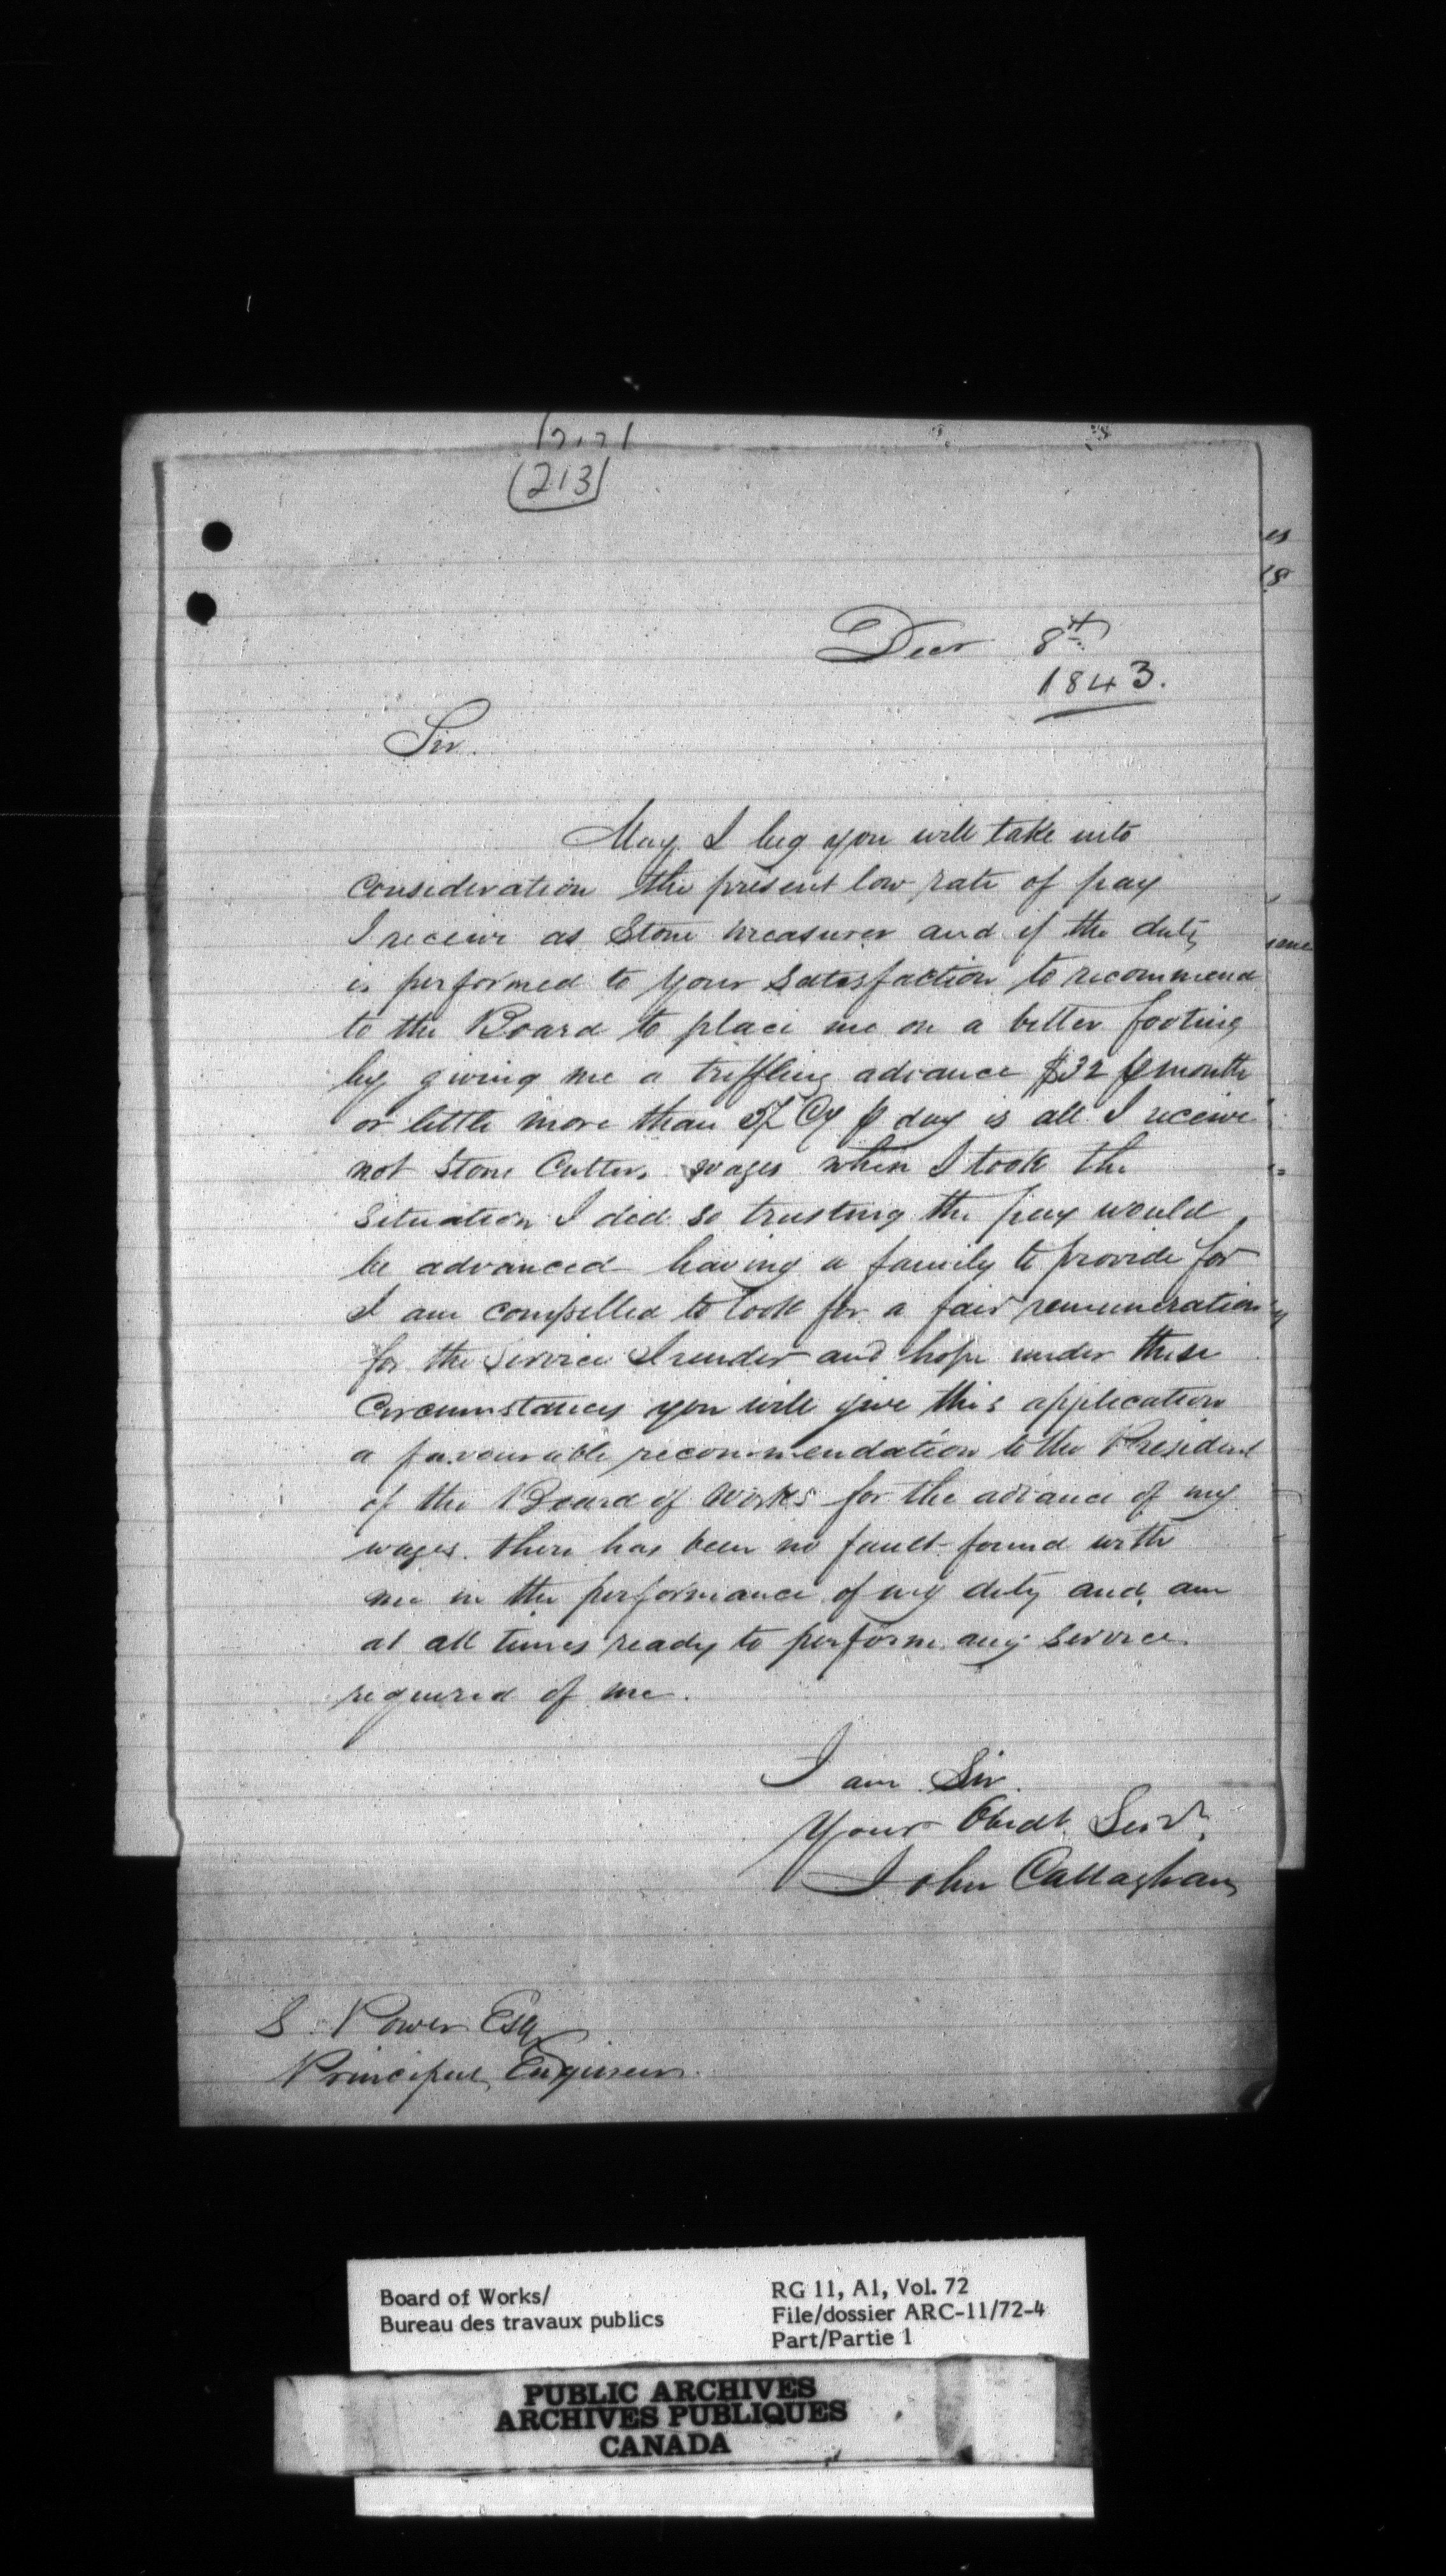 (213)
Decr 8th
1843.
Sir.
May I beg you will take into
Consideration the present low rate of pay
I receive as Stone Measurer and if the duty
is performed to your satisfaction to recommend
to the Board to place me on a better footing
by giving me a triffling advance $32 ⅌ month
or little more than 5/ Cy ⅌ day is all I receive
not Stone Cutters wages when I took the
situation I did so trusting the pay would
be advanced having a family to provide for
I am compelled to look for a fair remuneration
for the service I render and hope under these
Circumstances you will give this application
a favourable recommendation to the President
of the Board of Works for the advance of my
wages. there has been no fault found with
me in the performance of my duty and am
at all times ready to perform any service
required of me.
I am Sir.
Your Obedt. Servt.
John Callaghan
S. Power Esqr
Principal Engineer.
Board of Works/
Bureau des travaux publics
RG 11, A1, Vol. 72
File/dossier ARC-11/72-4
Part/Partie 1
PUBLIC ARCHIVES
ARCHIVES PUBLIQUES
CANADA